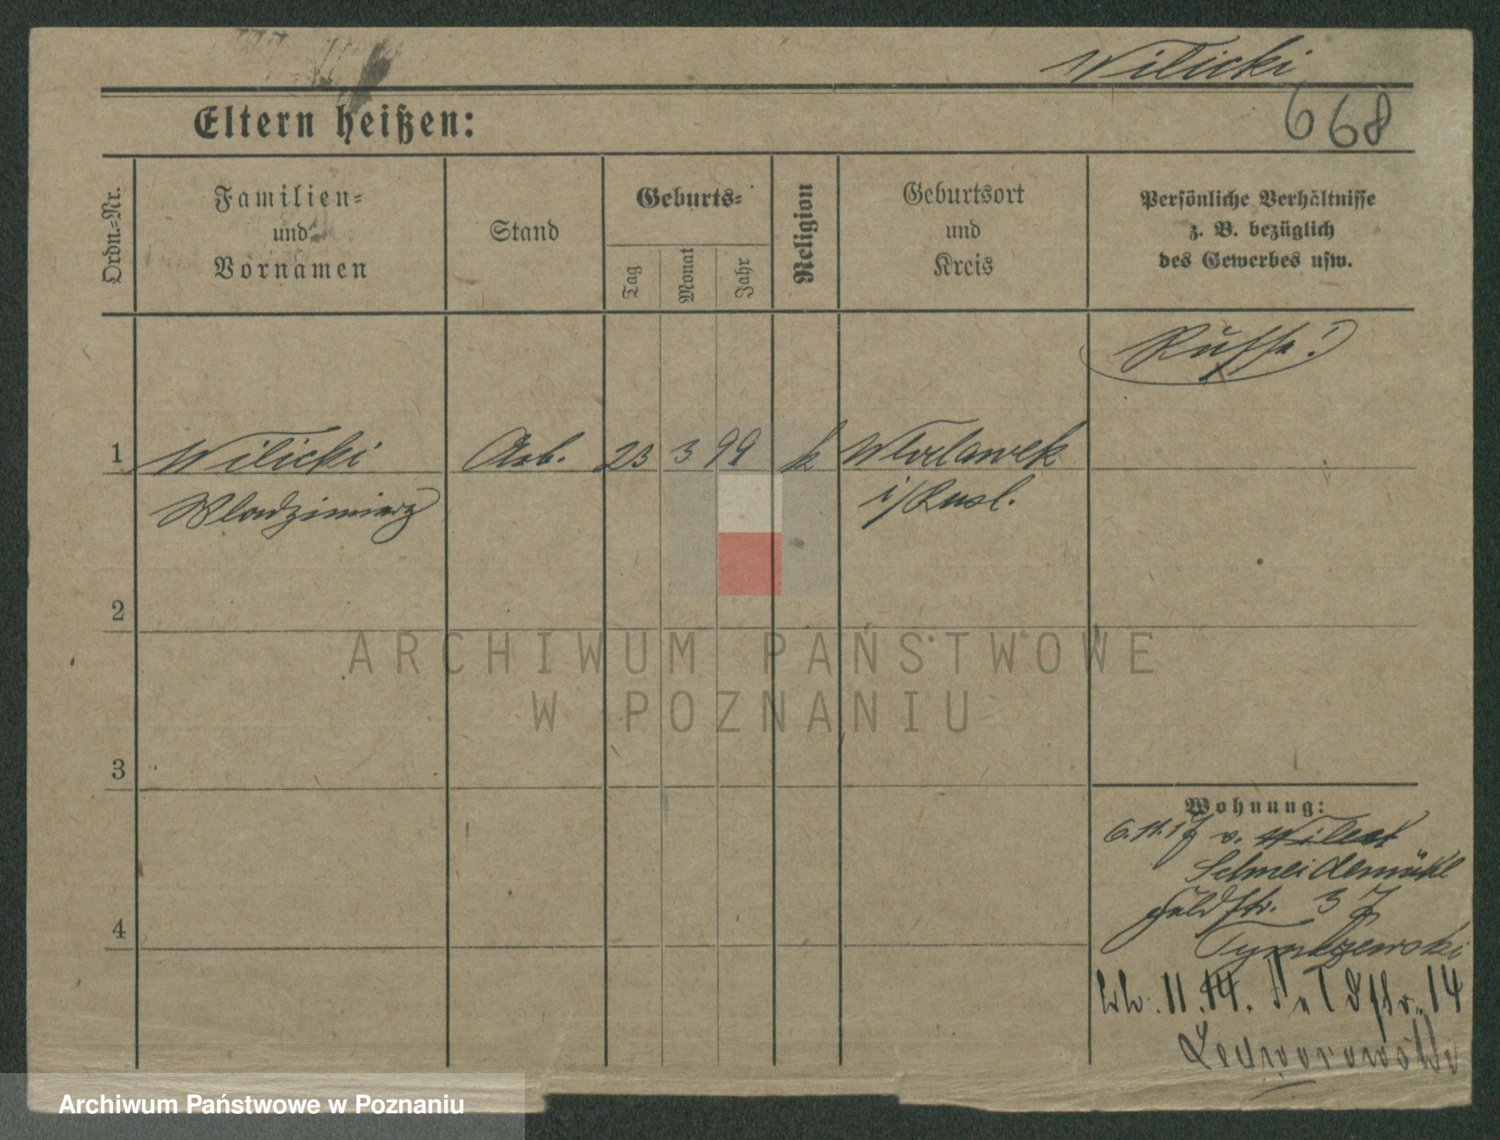 Wilicki
668
Eltern heißen:
Ordn.-Nr.
Familien- und Vornamen
Stand
Geburts-
Tag
Monat
Jahr
Religion
Geburtsort und Kreis
Persönliche Verhältnisse
z. B. bezüglich
des Gewerbes usw.
Russe!
1 Wilicki Arb. 23 3 99 k Wloclawek
Wlodzimierz i/Russl.
2
3
4
Wohnung:
6.11.17 v.
Schneidemühl
Feldstr. 37
11.14. 14
ARCHIWUM PAŃSTWOWE
W POZNANIU
Archiwum Państwowe w Poznaniu